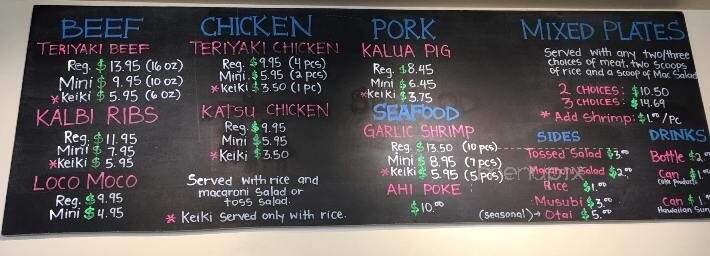 BEEF
TERIYAKI BEEF
Reg. $13.95 (16 oz)
Mini $9.95 (10 oz)
*Keiki $5.95 (6 oz)
KALBI RIBS
Reg. $11.95
Mini $7.95
*Keiki $5.95
LOCO MOCO
Reg. $9.95
Mini $4.95
CHICKEN
TERIYAKI CHICKEN
Reg. $9.95 (4 pcs)
Mini $5.95 (2 pcs)
*Keiki $3.50 (1 pc)
KATSU CHICKEN
Reg. $9.95
Mini $5.95
*Keiki $3.50
Served with rice and
macaroni salad or
toss salad.
* Keiki Served only with rice.
PORK
KALUA PIG
Reg. $8.45
Mini $6.45
*Keiki $3.75
SEAFOOD
GARLIC SHRIMP
Reg. $13.50 (10 pcs)
Mini $8.95 (7 pcs)
*Keiki $5.95 (5 pcs)
AHI POKE
$10.00
MIXED PLATES
Served with any two/three
choices of meat, two scoops
of rice and a scoop of Mac Salad
2 CHOICES: $10.50
3 CHOICES: $14.69
* Add Shrimp: $1.00/Pc
SIDES
Tossed Salad $3.00
Macaroni Salad $2.00
Rice $1.00
Musubi $3.00
(seasonal)→ Otai $5.00
DRINKS
Bottle $2.
Can $1.
Coke Products
Can $1.
Hawaiian Sun